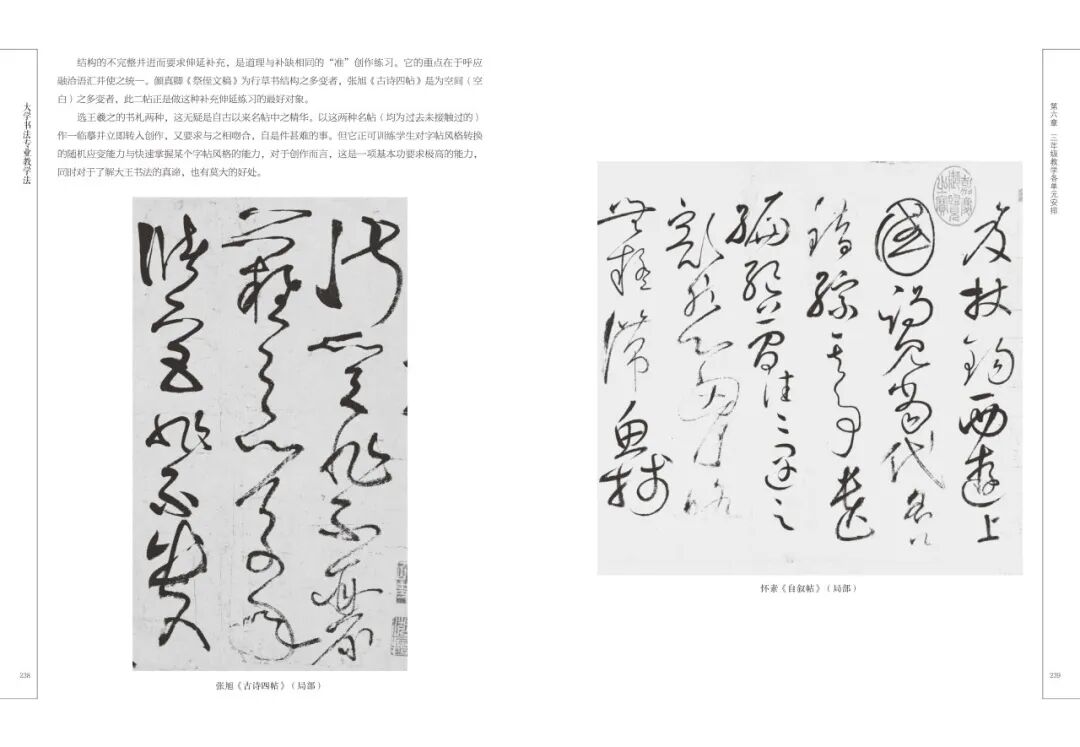 大学书法专业教学法
238
结构的不完整并进而要求伸延补充，是道理与补缺相同的“准”创作练习。它的重点在于呼应
融洽语汇并使之统一。颜真卿《祭侄文稿》为行草书结构之多变者，张旭《古诗四帖》是为空间（空
白）之多变者，此二帖正是做这种补充伸延练习的最好对象。
选王羲之的书札两种，这无疑是自古以来名帖中之精华。以这两种名帖（均为过去未接触过的）
作一临摹并立即转入创作，又要求与之相吻合，自是件甚难的事。但它正可训练学生对字帖风格转换
的随机应变能力与快速掌握某个字帖风格的能力，对于创作而言，这是一项基本功要求极高的能力，
同时对于了解大王书法的真谛，也有莫大的好处。
淑質非不麗
難之以万年
儲宮非不貴
张旭《古诗四帖》（局部）
嘉慶御覽之寶
笈杖錫西遊上
國謁見當代名公
錯綜其事遺
編絶簡往々遇之
豁然心胸略
無疑滯魚牋
怀素《自叙帖》（局部）
第六章 三年级教学各单元安排
239